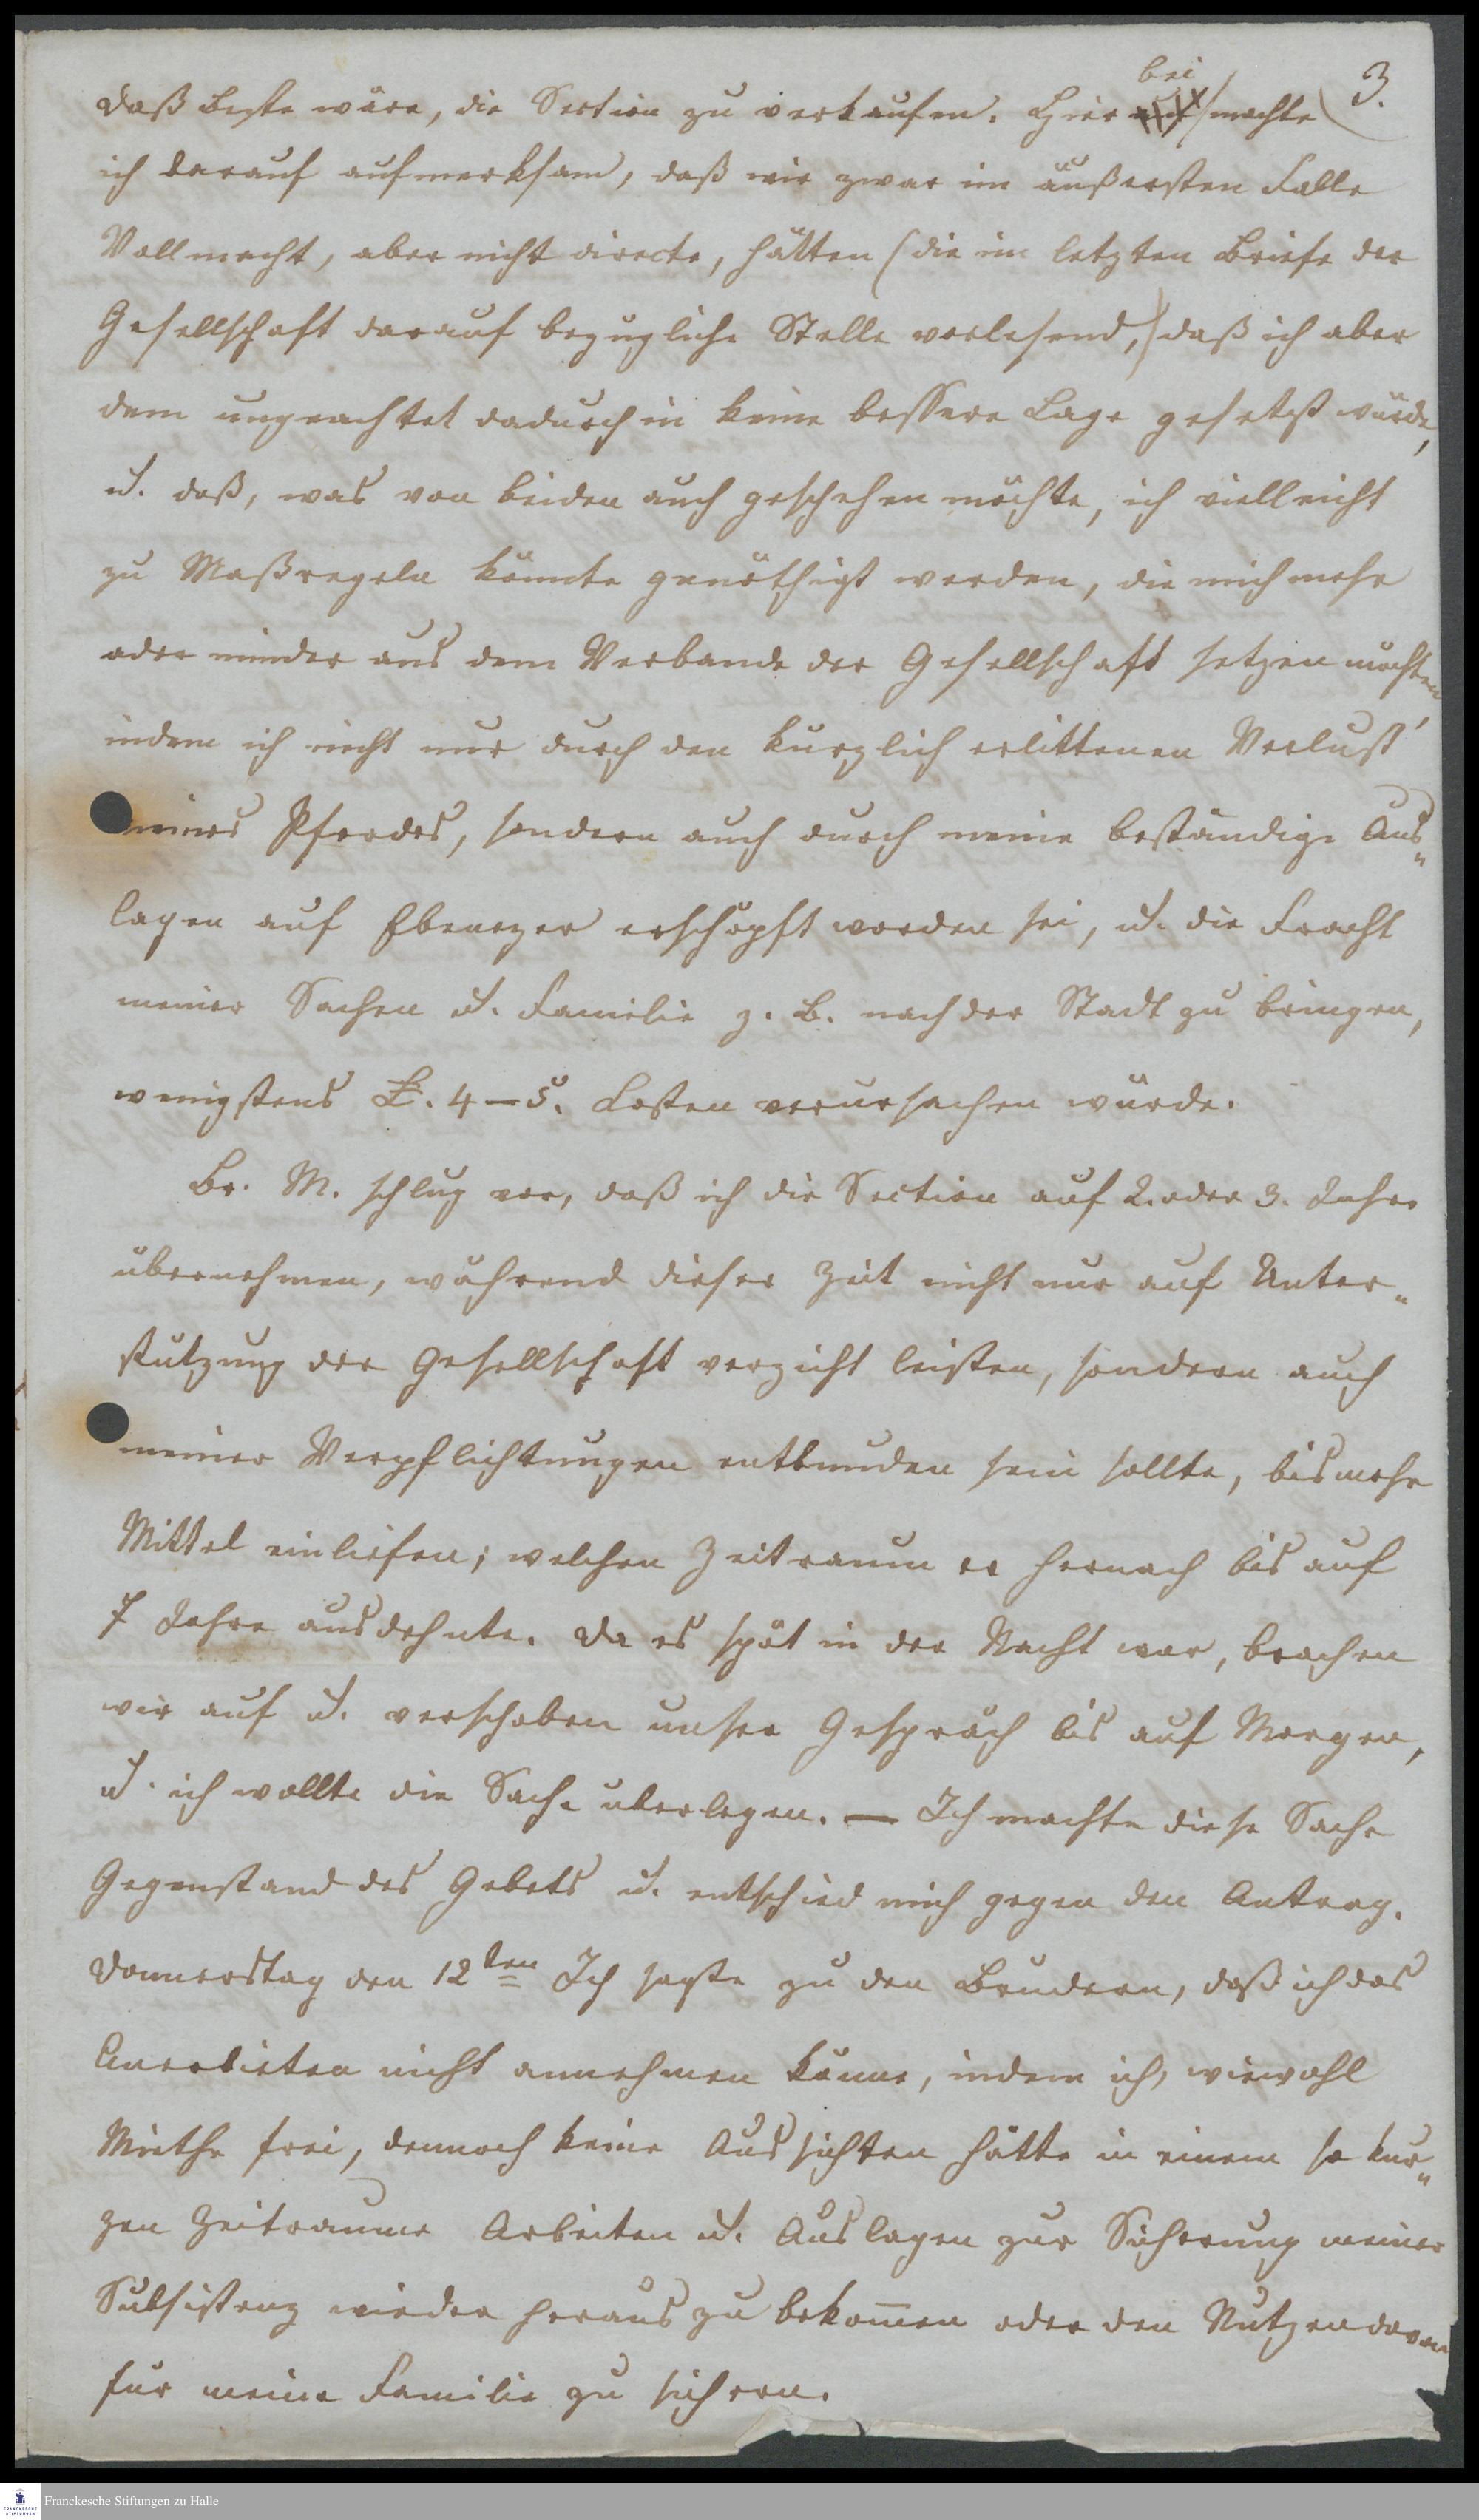 3.
daß beste wäre, die Section zu verkaufen. Hier bei machte
ich darauf aufmerksam, daß wir zwar im äußersten Falle
Vollmacht, aber nicht directe, hätten (die im letzten Briefe der
Gesellschaft darauf bezugliche Stelle vorlesend,) daß ich aber
dem ungeachtet dadurch in keine bessere Lage gesetzt würde,
u. daß, was von beiden auch geschehen möchte, ich vielleicht
zu Maßregeln könnte genöthigt werden, die mich mehr
oder minder aus dem Verbande der Gesellschaft setzen möchten,
indem ich nicht nur durch den kurzlich erlittenen Verlust
meines Pferdes, sondern auch durch meine beständige Aus„
lagen auf Ebenezer erschöpft worden sei, u. die Fracht
meiner Sachen u. Familie z. B. nach der Stadt zu bringen,
wenigstens £. 4–5. Kosten verursachen würde.
Br. M. schlug vor, daß ich die Section auf 2. oder 3. Jahre
übernehmen, während dieser Zeit nicht nur auf Unter„
stützung der Gesellschaft verzicht leisten, sondern auch
meiner Verpflichtungen entbunden sein sollte, bis mehr
Mittel einliefen; welchen Zeitraum er hernach bis auf
7 Jahre ausdehnte. Da es spät in der Nacht war, brachen
wir auf u. verschoben unser Gespräch bis auf Morgen,
u. ich wollte die Sache uberlegen. — Ich machte diese Sache
Gegenstand des Gebets u. entschied mich gegen den Antrag.
Donnerstag den 12ten Ich sagte zu den Brudern, daß ich das
Anerbieten nicht annehmen könne, indem ich, wiewohl
Miethe frei, dennoch keine Aussichten hätte in einem so kur„
zen Zeitraume Arbeiten u. Auslagen zur Sicherung meiner
Subsistenz wieder heraus zu bekommen oder den Nutzen davon
fur meine Familie zu sichern.
Franckesche Stiftungen zu Halle